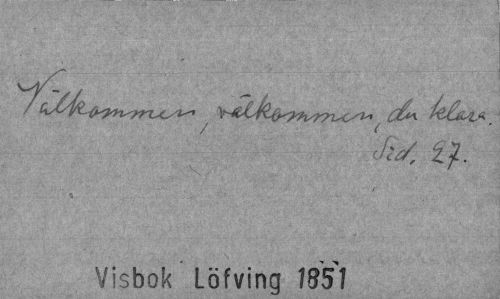 Välkommen, välkommen, du klara.
Sid. 27.
Visbok Löfving 1851